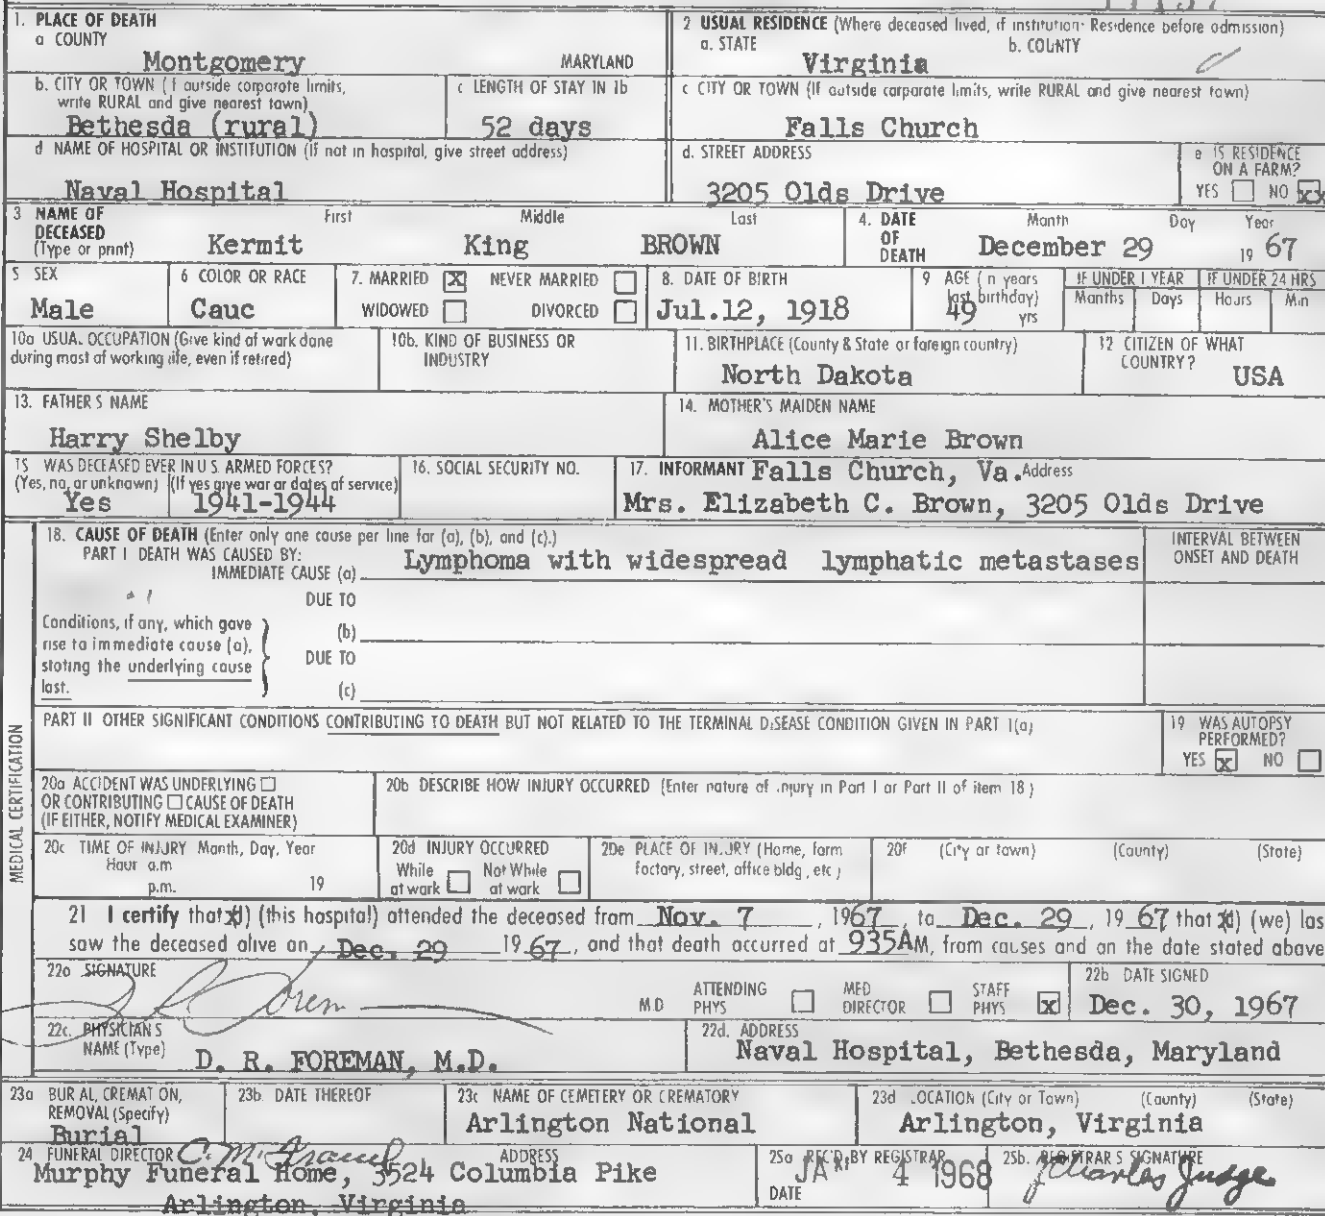 1. PLACE OF DEATH
a COUNTY
Montgomery MARYLAND
2 USUAL RESIDENCE (Where deceased lived, if institution: Residence before admission)
a. STATE b. COUNTY
Virginia
b. CITY OR TOWN (If outside corporate limits, write RURAL and give nearest town)
Bethesda (rural)
c LENGTH OF STAY IN 1b
52 days
c CITY OR TOWN (If outside corporate limits, write RURAL and give nearest town)
Falls Church
d NAME OF HOSPITAL OR INSTITUTION (If not in hospital, give street address)
Naval Hospital
d. STREET ADDRESS
3205 Olds Drive
e IS RESIDENCE ON A FARM?
YES NO xx
3 NAME OF DECEASED (Type or print)
First Middle Last
Kermit King BROWN
4. DATE OF DEATH
Month Day Year
December 29 19 67
5 SEX
Male
6 COLOR OR RACE
Cauc
7. MARRIED X NEVER MARRIED
WIDOWED DIVORCED
8. DATE OF BIRTH
Jul.12, 1918
9 AGE (In years last birthday)
49 yrs
IF UNDER 1 YEAR
Months Days
IF UNDER 24 HRS
Hours Min
10a USUAL OCCUPATION (Give kind of work done during most of working life, even if retired)
10b. KIND OF BUSINESS OR INDUSTRY
11. BIRTHPLACE (County & State or foreign country)
North Dakota
12 CITIZEN OF WHAT COUNTRY?
USA
13. FATHER'S NAME
Harry Shelby
14. MOTHER'S MAIDEN NAME
Alice Marie Brown
15 WAS DECEASED EVER IN U S. ARMED FORCES?
(Yes, no, or unknown) (If yes give war or dates of service)
Yes 1941-1944
16. SOCIAL SECURITY NO.
17. INFORMANT Falls Church, Va. Address
Mrs. Elizabeth C. Brown, 3205 Olds Drive
MEDICAL CERTIFICATION
18. CAUSE OF DEATH (Enter only one cause per line for (a), (b), and (c).)
PART I DEATH WAS CAUSED BY:
IMMEDIATE CAUSE (a) Lymphoma with widespread lymphatic metastases
INTERVAL BETWEEN ONSET AND DEATH
Conditions, if any, which gave rise to immediate cause (a), stating the underlying cause last.
DUE TO
(b)
DUE TO
(c)
PART II OTHER SIGNIFICANT CONDITIONS CONTRIBUTING TO DEATH BUT NOT RELATED TO THE TERMINAL DISEASE CONDITION GIVEN IN PART I(a)
19 WAS AUTOPSY PERFORMED?
YES x NO
20a ACCIDENT WAS UNDERLYING
OR CONTRIBUTING CAUSE OF DEATH
(IF EITHER, NOTIFY MEDICAL EXAMINER)
20b DESCRIBE HOW INJURY OCCURRED (Enter nature of injury in Part I or Part II of item 18)
20c TIME OF INJURY Month, Day, Year
Hour a.m
p.m. 19
20d INJURY OCCURRED
While at work Not While at work
20e PLACE OF INJURY (Home, farm factory, street, office bldg, etc)
20f (City or town) (County) (State)
21 I certify that (I) (this hospital) attended the deceased from Nov. 7, 1967, to Dec. 29, 19 67 that (I) (we) las
saw the deceased alive on Dec. 29 19 67, and that death occurred at 935AM, from causes and on the date stated above
22a SIGNATURE
M D ATTENDING PHYS MED DIRECTOR STAFF PHYS x
22b DATE SIGNED
Dec. 30, 1967
22c. PHYSICIAN'S NAME (Type)
D. R. FOREMAN, M.D.
22d. ADDRESS
Naval Hospital, Bethesda, Maryland
23a BURIAL, CREMATION, REMOVAL (Specify)
Burial
23b. DATE THEREOF
23c NAME OF CEMETERY OR CREMATORY
Arlington National
23d LOCATION (City or Town) (County) (State)
Arlington, Virginia
24 FUNERAL DIRECTOR ADDRESS
Murphy Funeral Home, 3524 Columbia Pike
Arlington, Virginia
25a REC'D BY REGISTRAR
DATE JAN 4 1968
25b. REGISTRAR'S SIGNATURE
J Charles Judge